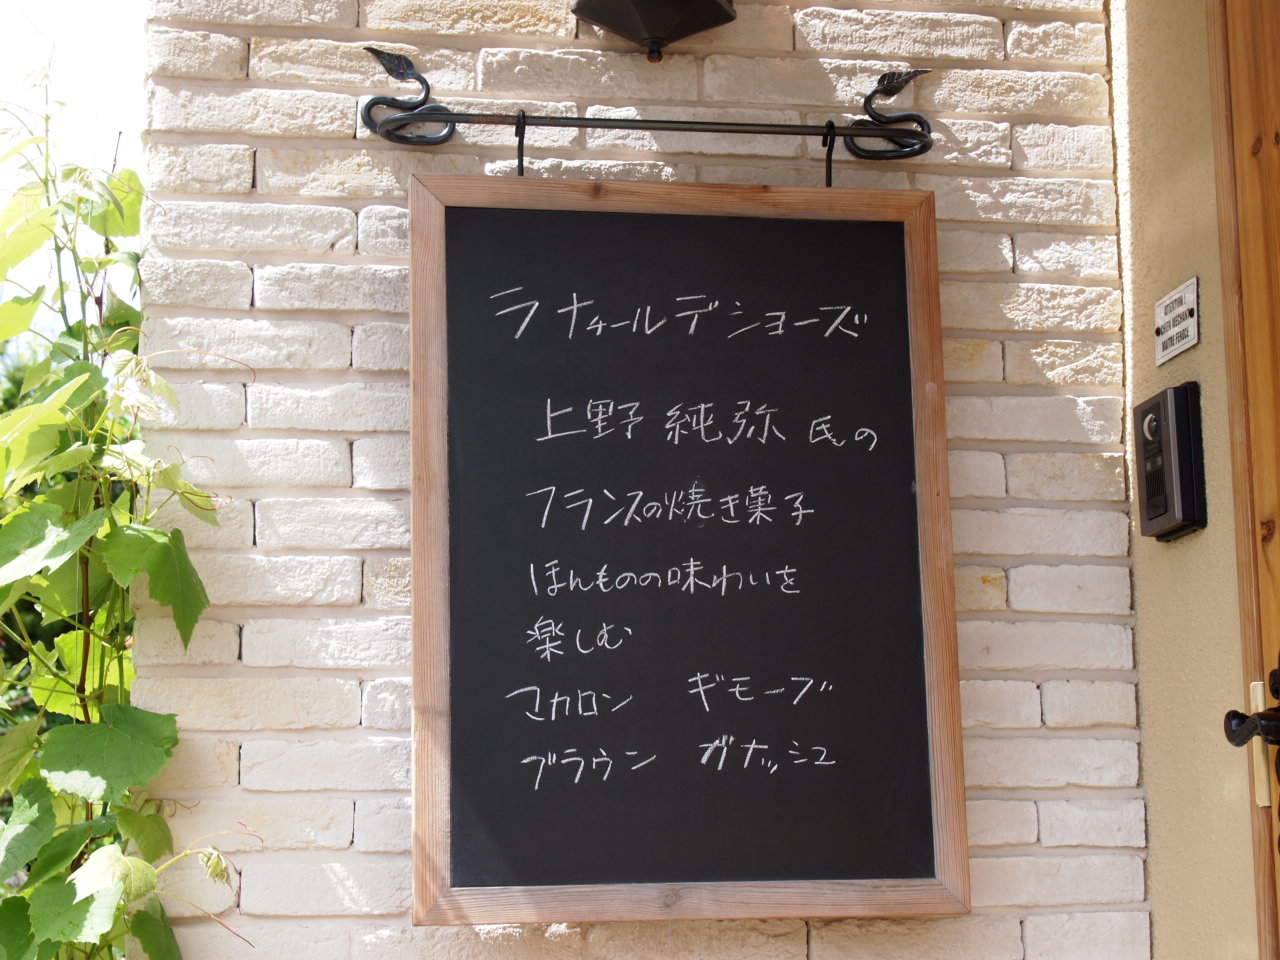 ラ ナチュール デ ショーズ
上野 純弥 氏の
フランスの焼き菓子
ほんものの味わいを
楽しむ
マカロン ギモーブ
ブラウン ガナッシュ
ATTENTION !
CHIEN MECHANT
MAITRE FEROCE